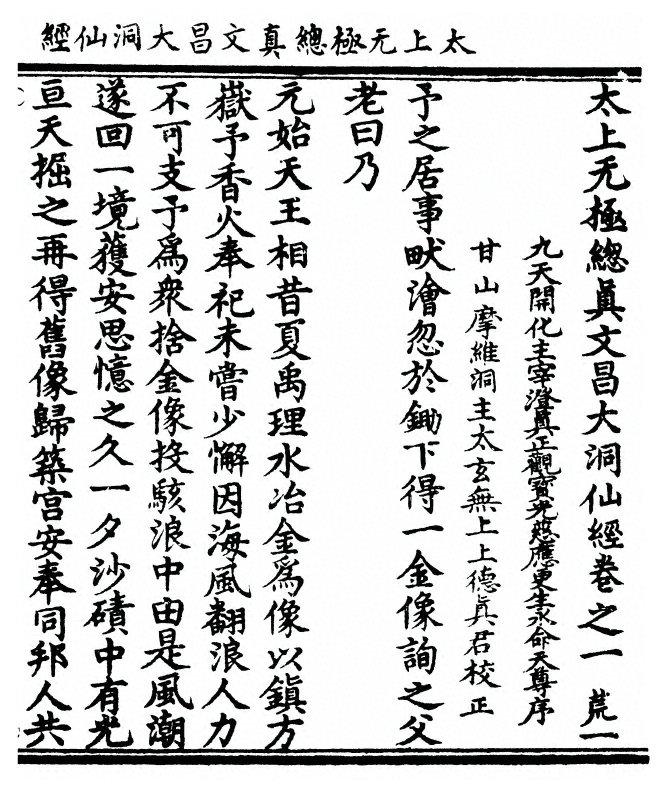 太上无極總真文昌大洞仙經
太上无極總眞文昌大洞仙經卷之一 荒一
九天開化主宰澄眞正觀寳光慈應更生永命天尊序
甘山摩維洞主太玄無上上德眞君校正
予之居事畎澮忽於鋤下得一金像詢之父
老曰乃
元始天王相昔夏禹理水冶金爲像以鎮方
嶽予香火奉祀未嘗少懈因海風翻浪人力
不可支予爲衆捨金像投駭浪中由是風潮
遂回一境獲安思憶之久一夕沙磧中有光
亘天掘之再得舊像歸築宫安奉同邦人共